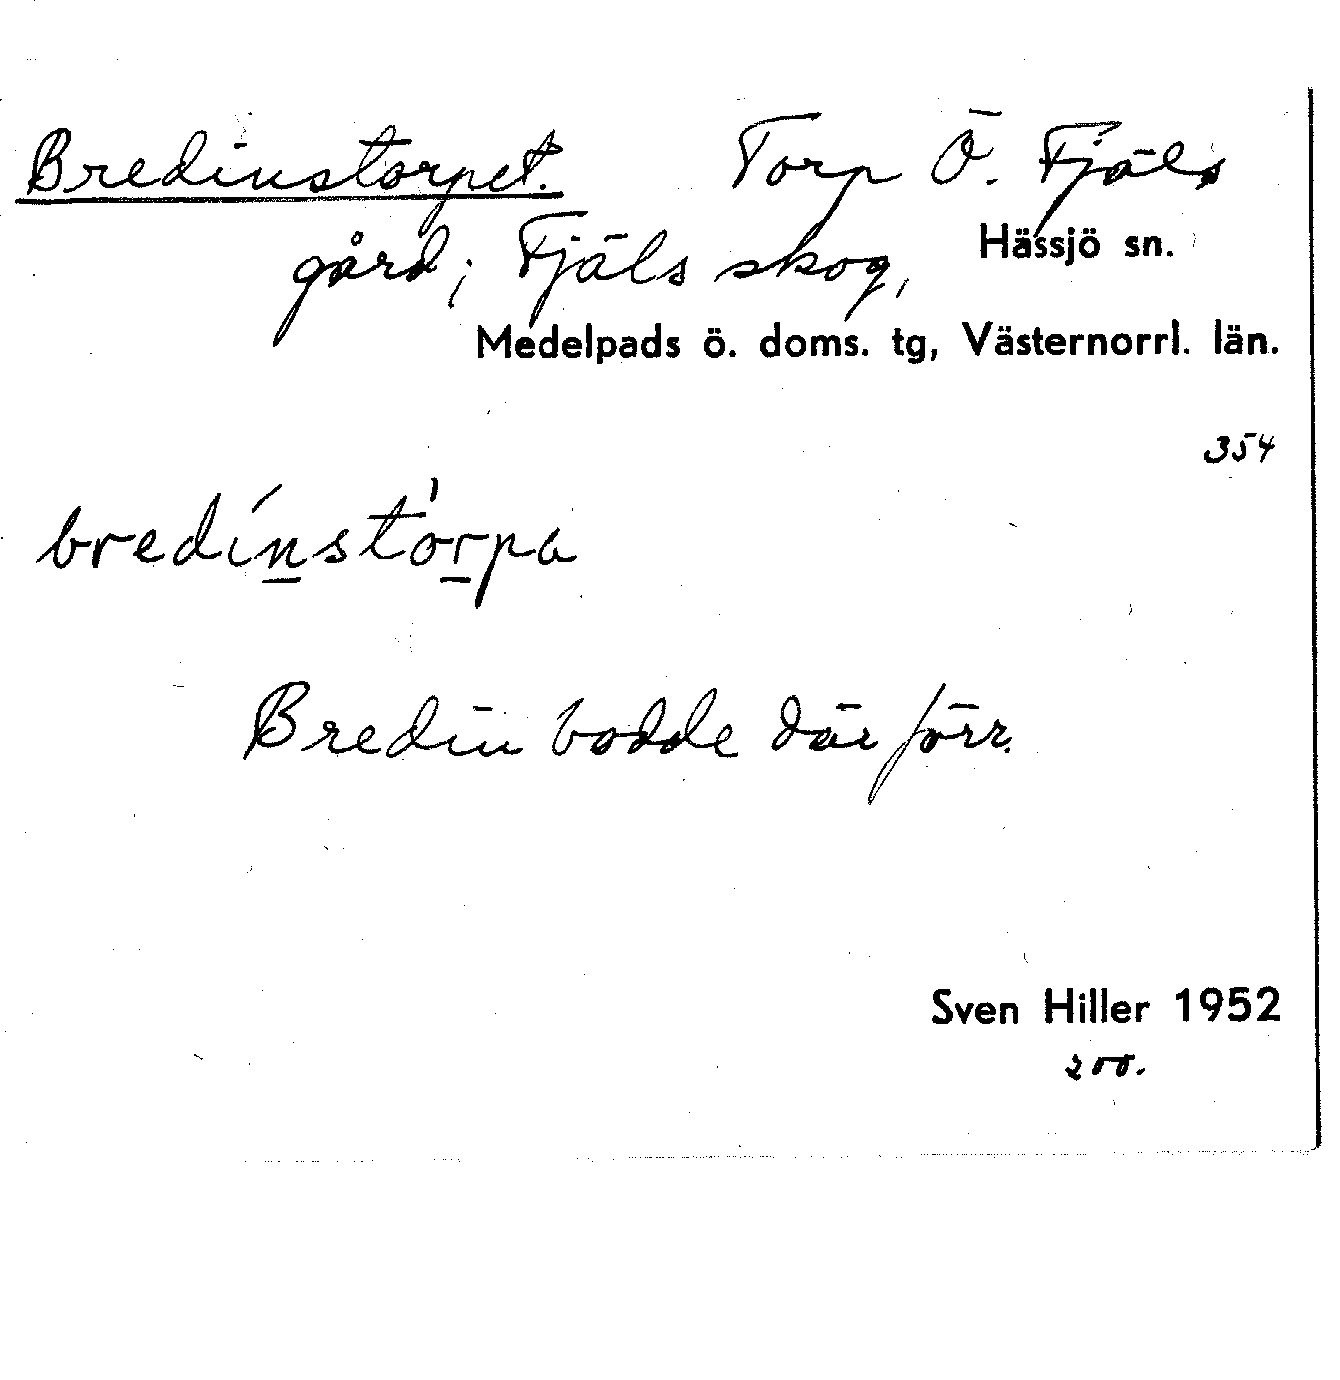 Bredinstorpet. Torp Ö. Fjäls
gård; Fjäls skog, Hässjö sn.
Medelpads ö. doms. tg, Västernorrl. län.
354
bredi´n̲sto'r̲pa
Bredin bodde där förr.
Sven Hiller 1952